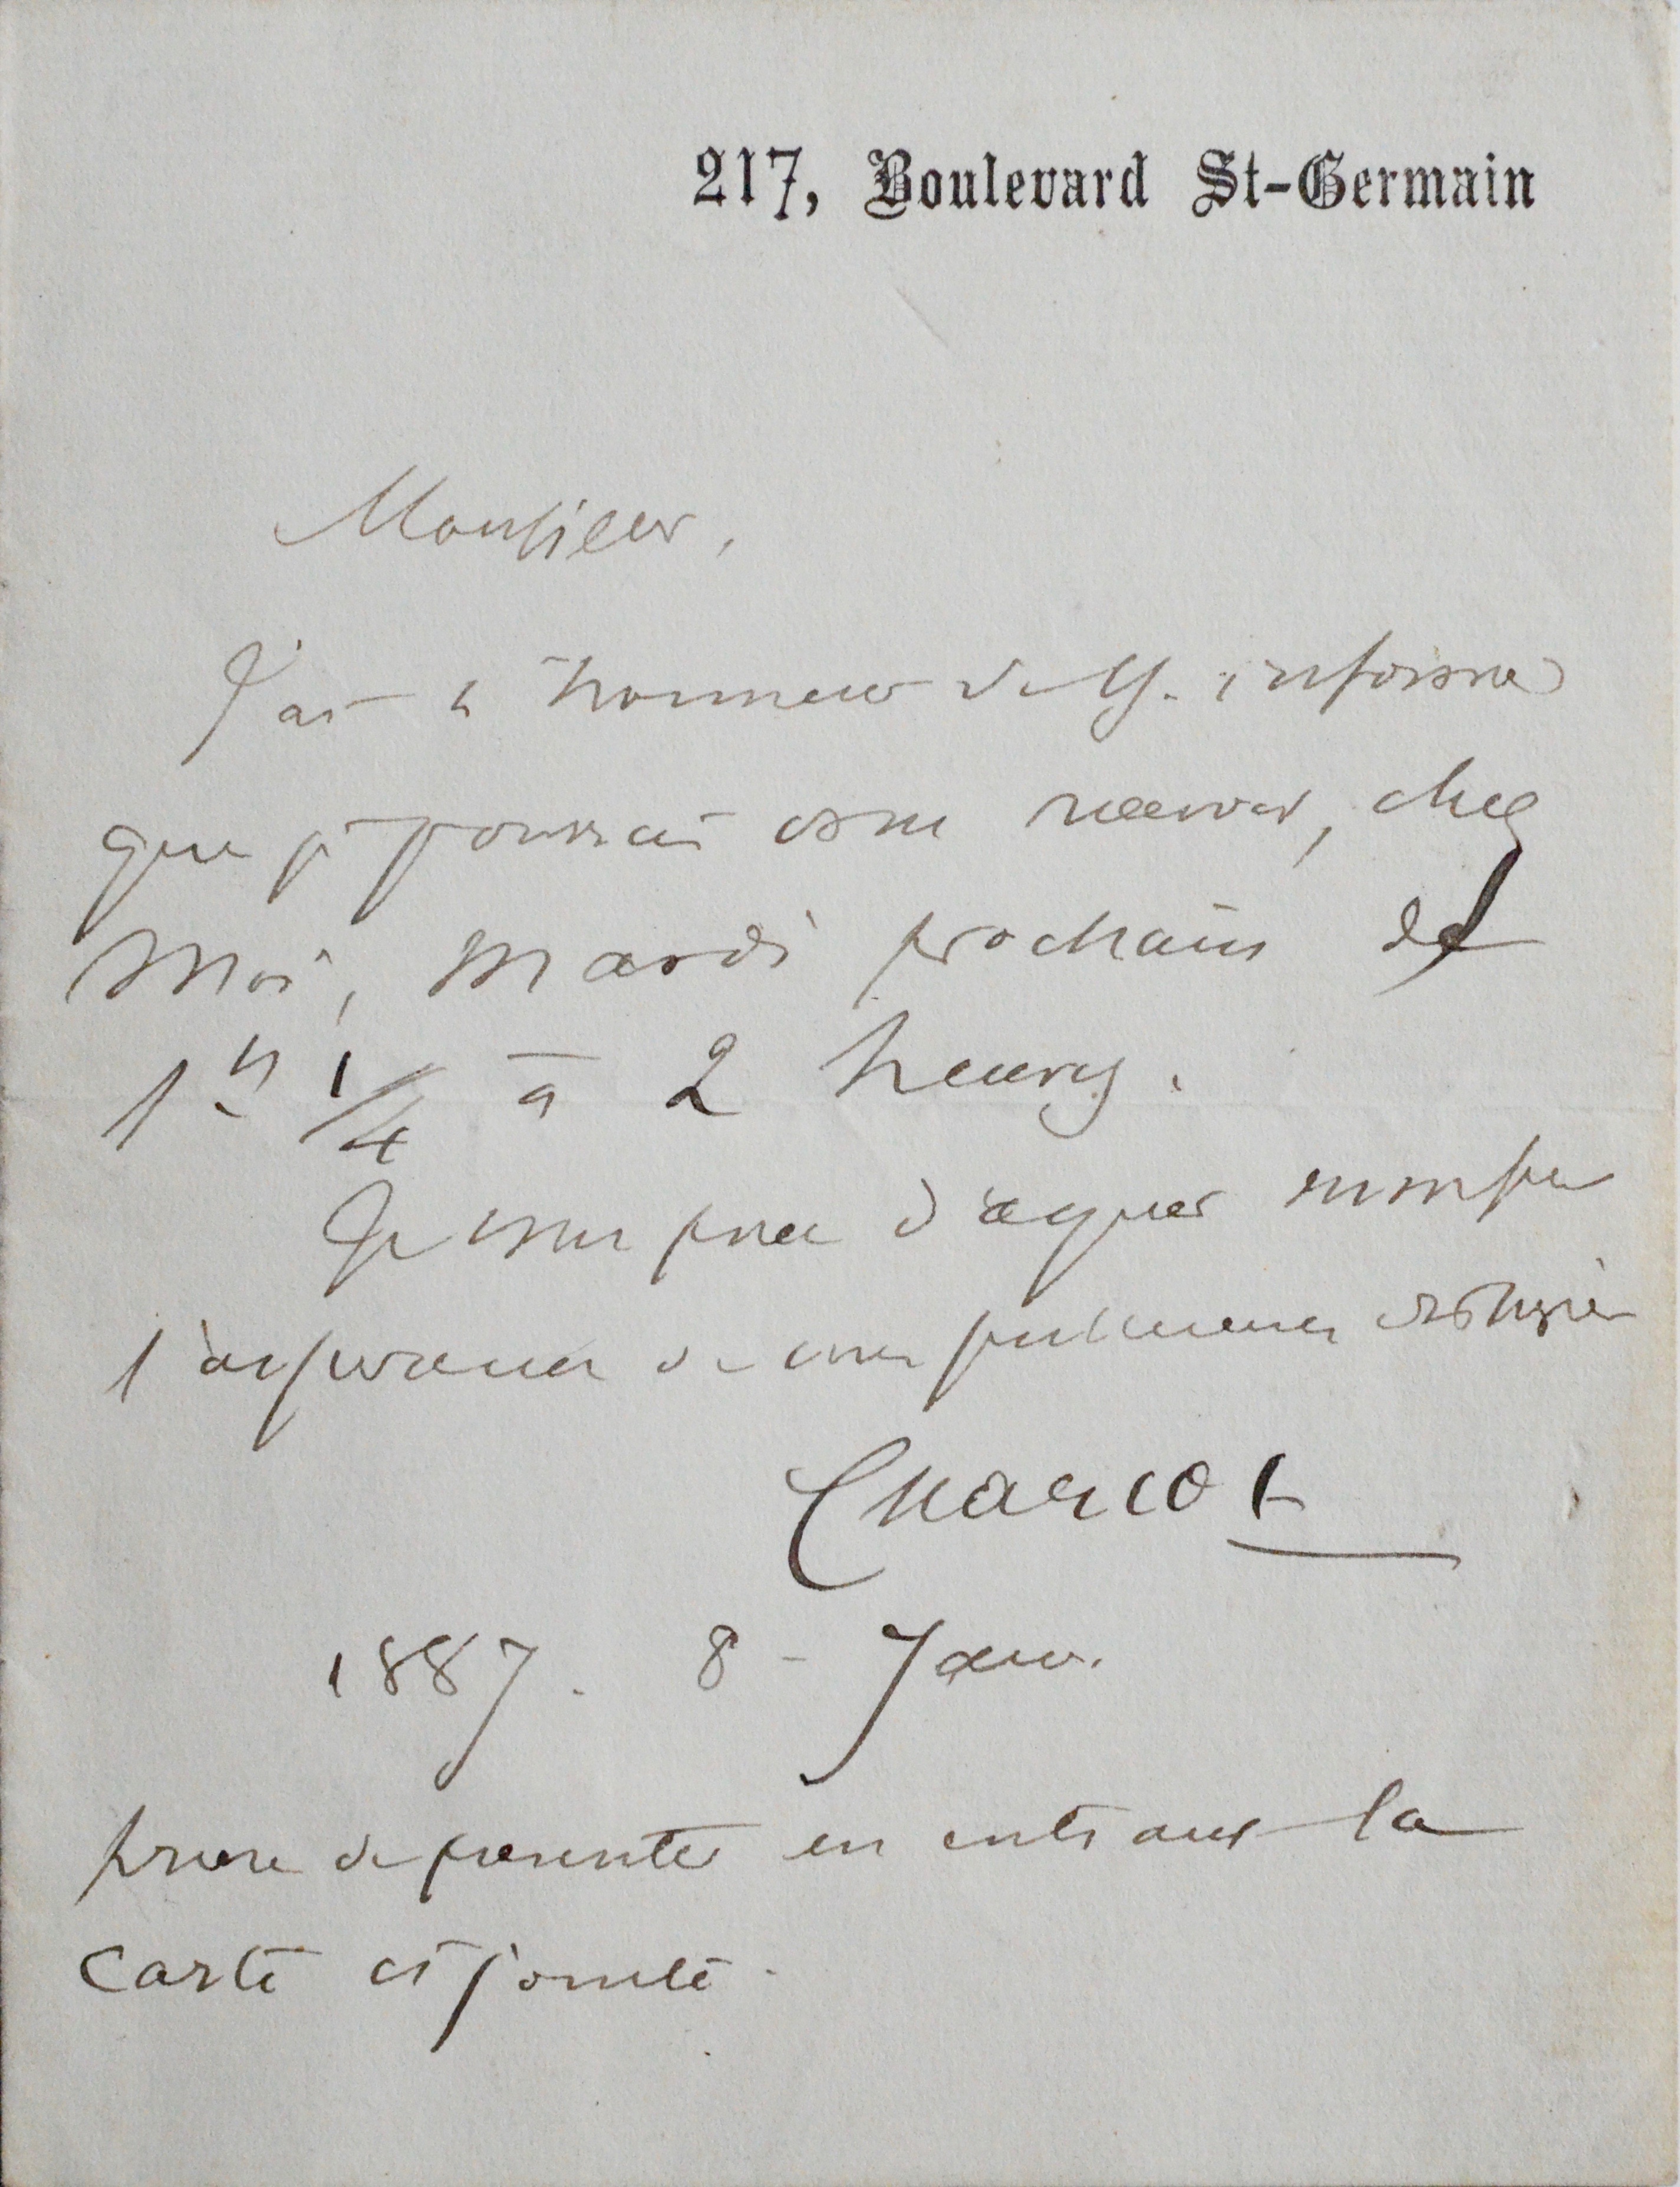 217, Boulevard St-Germain
Monsieur,
J'ai l'honneur de V. informer
que je pourrai vous recevoir, chez
moi, mardi prochain de
1h 1/4 à 2 heures.
Je vous prie d'agréer monsieur
l'assurance de mes sentiments distingués
Charcot
1887. 8 - Janv.
prière de présenter en entrant la
carte ci jointe.